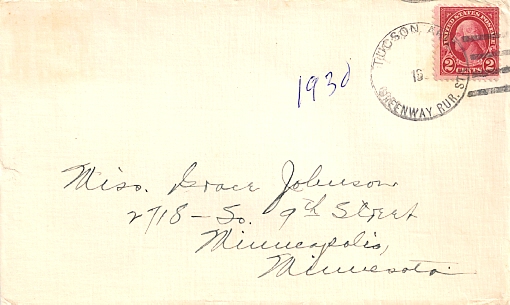 TUCSON, AR
UNITED STATES POSTAGE
2 CENTS 2
19
GREENWAY RUR. STA
1930
Miss. Grace Johnson
2718 - So. 9th Street
Minneapolis,
Minnesota